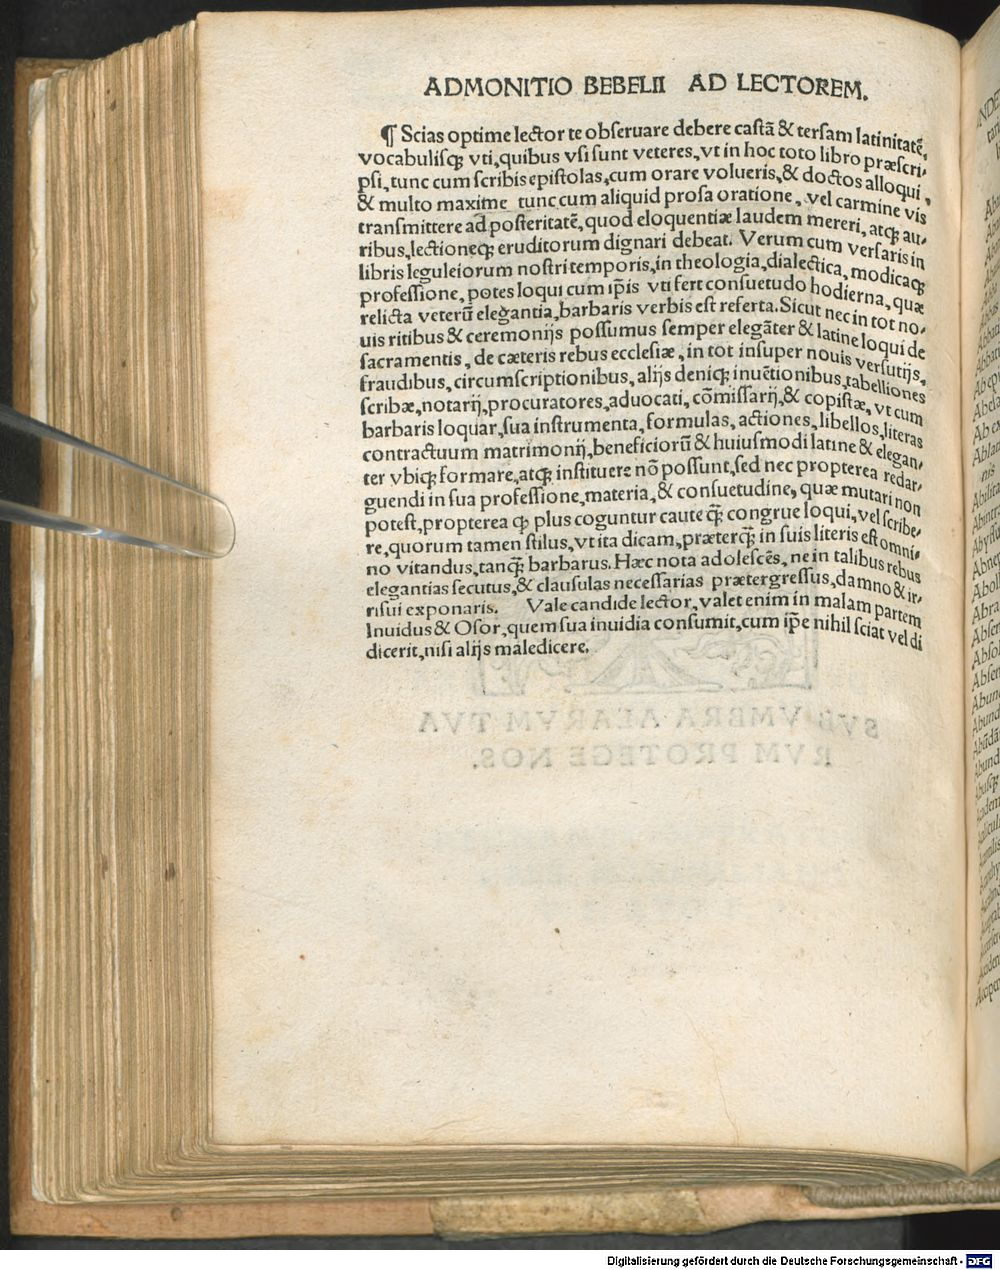 ADMONITIO BEBELII AD LECTOREM.
¶ Scias optime lector te obseruare debere castā & tersam latinitatē,
vocabulisqꝫ vti, quibus vsi sunt veteres, vt in hoc toto libro præscri-
psi, tunc cum scribis epistolas, cum orare volueris, & doctos alloqui,
& multo maxime tunc cum aliquid prosa oratione, vel carmine vis
transmittere ad posteritatē, quod eloquentiæ laudem mereri, atqꝫ au-
ribus, lectioneqꝫ eruditorum dignari debeat. Verum cum versaris in
libris leguleiorum nostri temporis, in theologia, dialectica, modicaqꝫ
professione, potes loqui cum ip̄is vti fert consuetudo hodierna, quæ
relicta veterū elegantia, barbaris verbis est referta. Sicut nec in tot no-
uis ritibus & ceremonijs possumus semper elegāter & latine loqui de
sacramentis, de cæteris rebus ecclesiæ, in tot insuper nouis versutijs,
fraudibus, circumscriptionibus, alijs deniqꝫ inuētionibus, tabelliones
scribæ, notarij, procuratores, aduocati, cōmissarij, & copistæ, vt cum
barbaris loquar, sua instrumenta, formulas, actiones, libellos, literas
contractuum matrimonij, beneficiorū & huiusmodi latine & elegan-
ter vbiqꝫ formare, atqꝫ instituere nō possunt, sed nec propterea redar-
guendi in sua professione, materia, & consuetudine, quæ mutari non
potest, propterea ꝙ plus coguntur caute qꝫ̄ congrue loqui, vel scribe-
re, quorum tamen stilus, vt ita dicam, præterqꝫ̄ in suis literis est omni-
no vitandus, tanqꝫ̄ barbarus. Hæc nota adolescēs, ne in talibus rebus
elegantias secutus, & clausulas necessarias prætergressus, damno & ir-
risui exponaris. Vale candide lector, valet enim in malam partem
Inuidus & Osor, quem sua inuidia consumit, cum ip̄e nihil sciat vel di
dicerit, nisi alijs maledicere.
SVB VMBRA ALARVM TVA
RVM PROTEGE NOS.
Digitalisierung gefördert durch die Deutsche Forschungsgemeinschaft - DFG